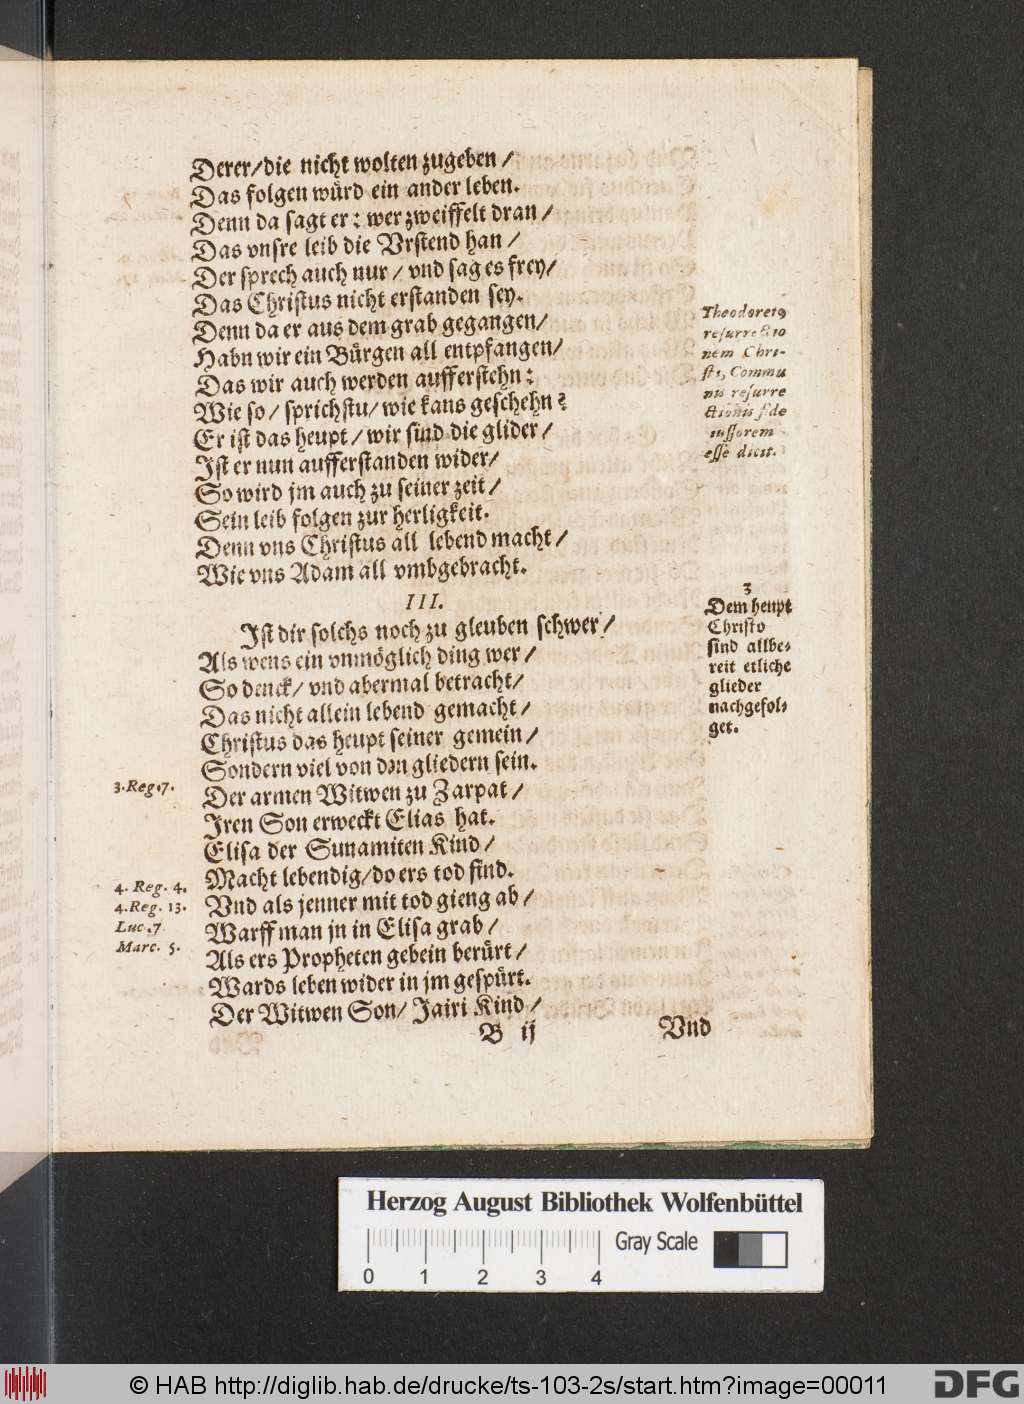 Derer/die nicht wolten zugeben /
Das folgen würd ein ander leben.
Denn da sagt er: wer zweiffelt dran /
Das vnsre leib die Vrstend han /
Der sprech auch nur / vnd sag es frey/
Das Christus nicht erstanden sey.
Denn da er aus dem grab gegangen/
Habn wir ein Bürgen all entpfangen/
Das wir auch werden aufferstehn:
Wie so/ sprichstu/ wie kans geschehn?
Er ist das heupt / wir sind die glider /
Ist er nun aufferstanden wider/
So wird jm auch zu seiner zeit /
Sein leib folgen zur herligkeit.
Denn vns Christus all lebend macht /
Wie vns Adam all vmbgebracht.
Theodoretꝰ
resurrectio
nem Chri-
sti, Commu
nis resurre
ctionis fide
iussorem
esse dicit.
III.
Ist dir solchs noch zu gleuben schwer /
Als wens ein vnmöglich ding wer /
So denck/ vnd abermal betracht/
Das nicht allein lebend gemacht /
Christus das heupt seiner gemein /
Sondern viel von den gliedern sein.
Der armen Witwen zu Zarpat /
Iren Son erweckt Elias hat.
Elisa der Sunamiten Kind /
Macht lebendig/ do ers tod find.
Vnd als jenner mit tod gieng ab /
Warff man jn in Elisa grab /
Als ers Propheten gebein berürt /
Wards leben wider in jm gespürt.
Der Witwen Son/ Jairi Kind /
3
Dem heupt
Christo
sind allbe-
reit etliche
glieder
nachgefol-
get.
3.Reg.7.
4. Reg. 4.
4.Reg. 13.
Luc.7
Marc. 5.
B ij
Vnd
Herzog August Bibliothek Wolfenbüttel
Gray Scale
0 1 2 3 4
© HAB http://diglib.hab.de/drucke/ts-103-2s/start.htm?image=00011
DFG